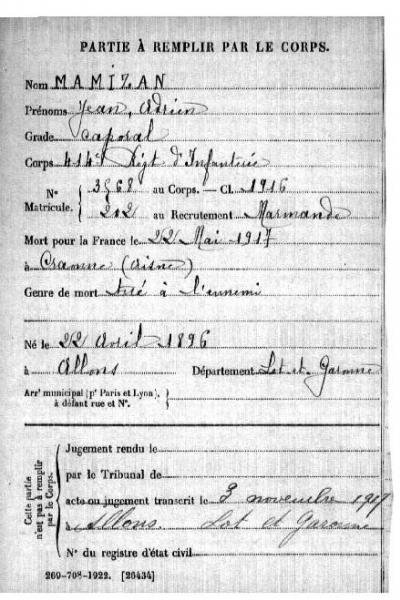 PARTIE À REMPLIR PAR LE CORPS.
Nom MAMIZAN
Prénoms Jean, Adrien
Grade caporal
Corps 414e Régt d'Infanterie
N° Matricule. { 3568 au Corps. — Cl. 1916
212 au Recrutement Marmande
Mort pour la France le 22 Mai 1917
à Craonne (Aisne)
Genre de mort tué à l'ennemi
Né le 22 Avril 1896
à Allons Département Lot et Garonne
Arrt municipal (pr Paris et Lyon), à défaut rue et N°. }
Cette partie n'est pas à remplir par le Corps.
Jugement rendu le
par le Tribunal de
acte ou jugement transcrit le 3 novembre 1917
à Allons. Lot et Garonne
N° du registre d'état civil
269-708-1922. [26434]